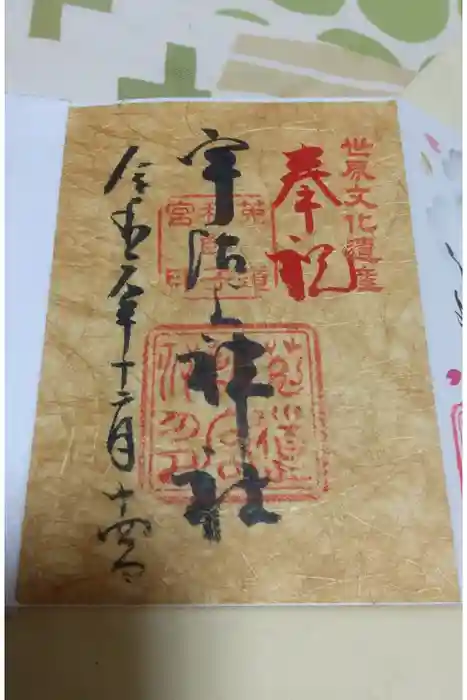 世界文化遺産
奉祝
宇治上神社
令和元年十二月十四日